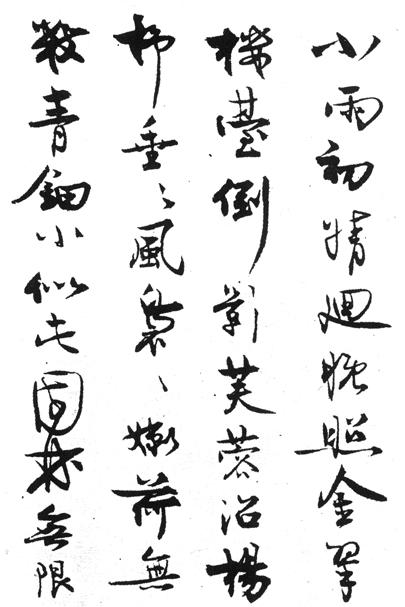 小雨初晴迴晚照金翠
樓臺倒影芙蓉沼楊
柳垂々風裊々嫩荷無
數青鈿小似此園林無限